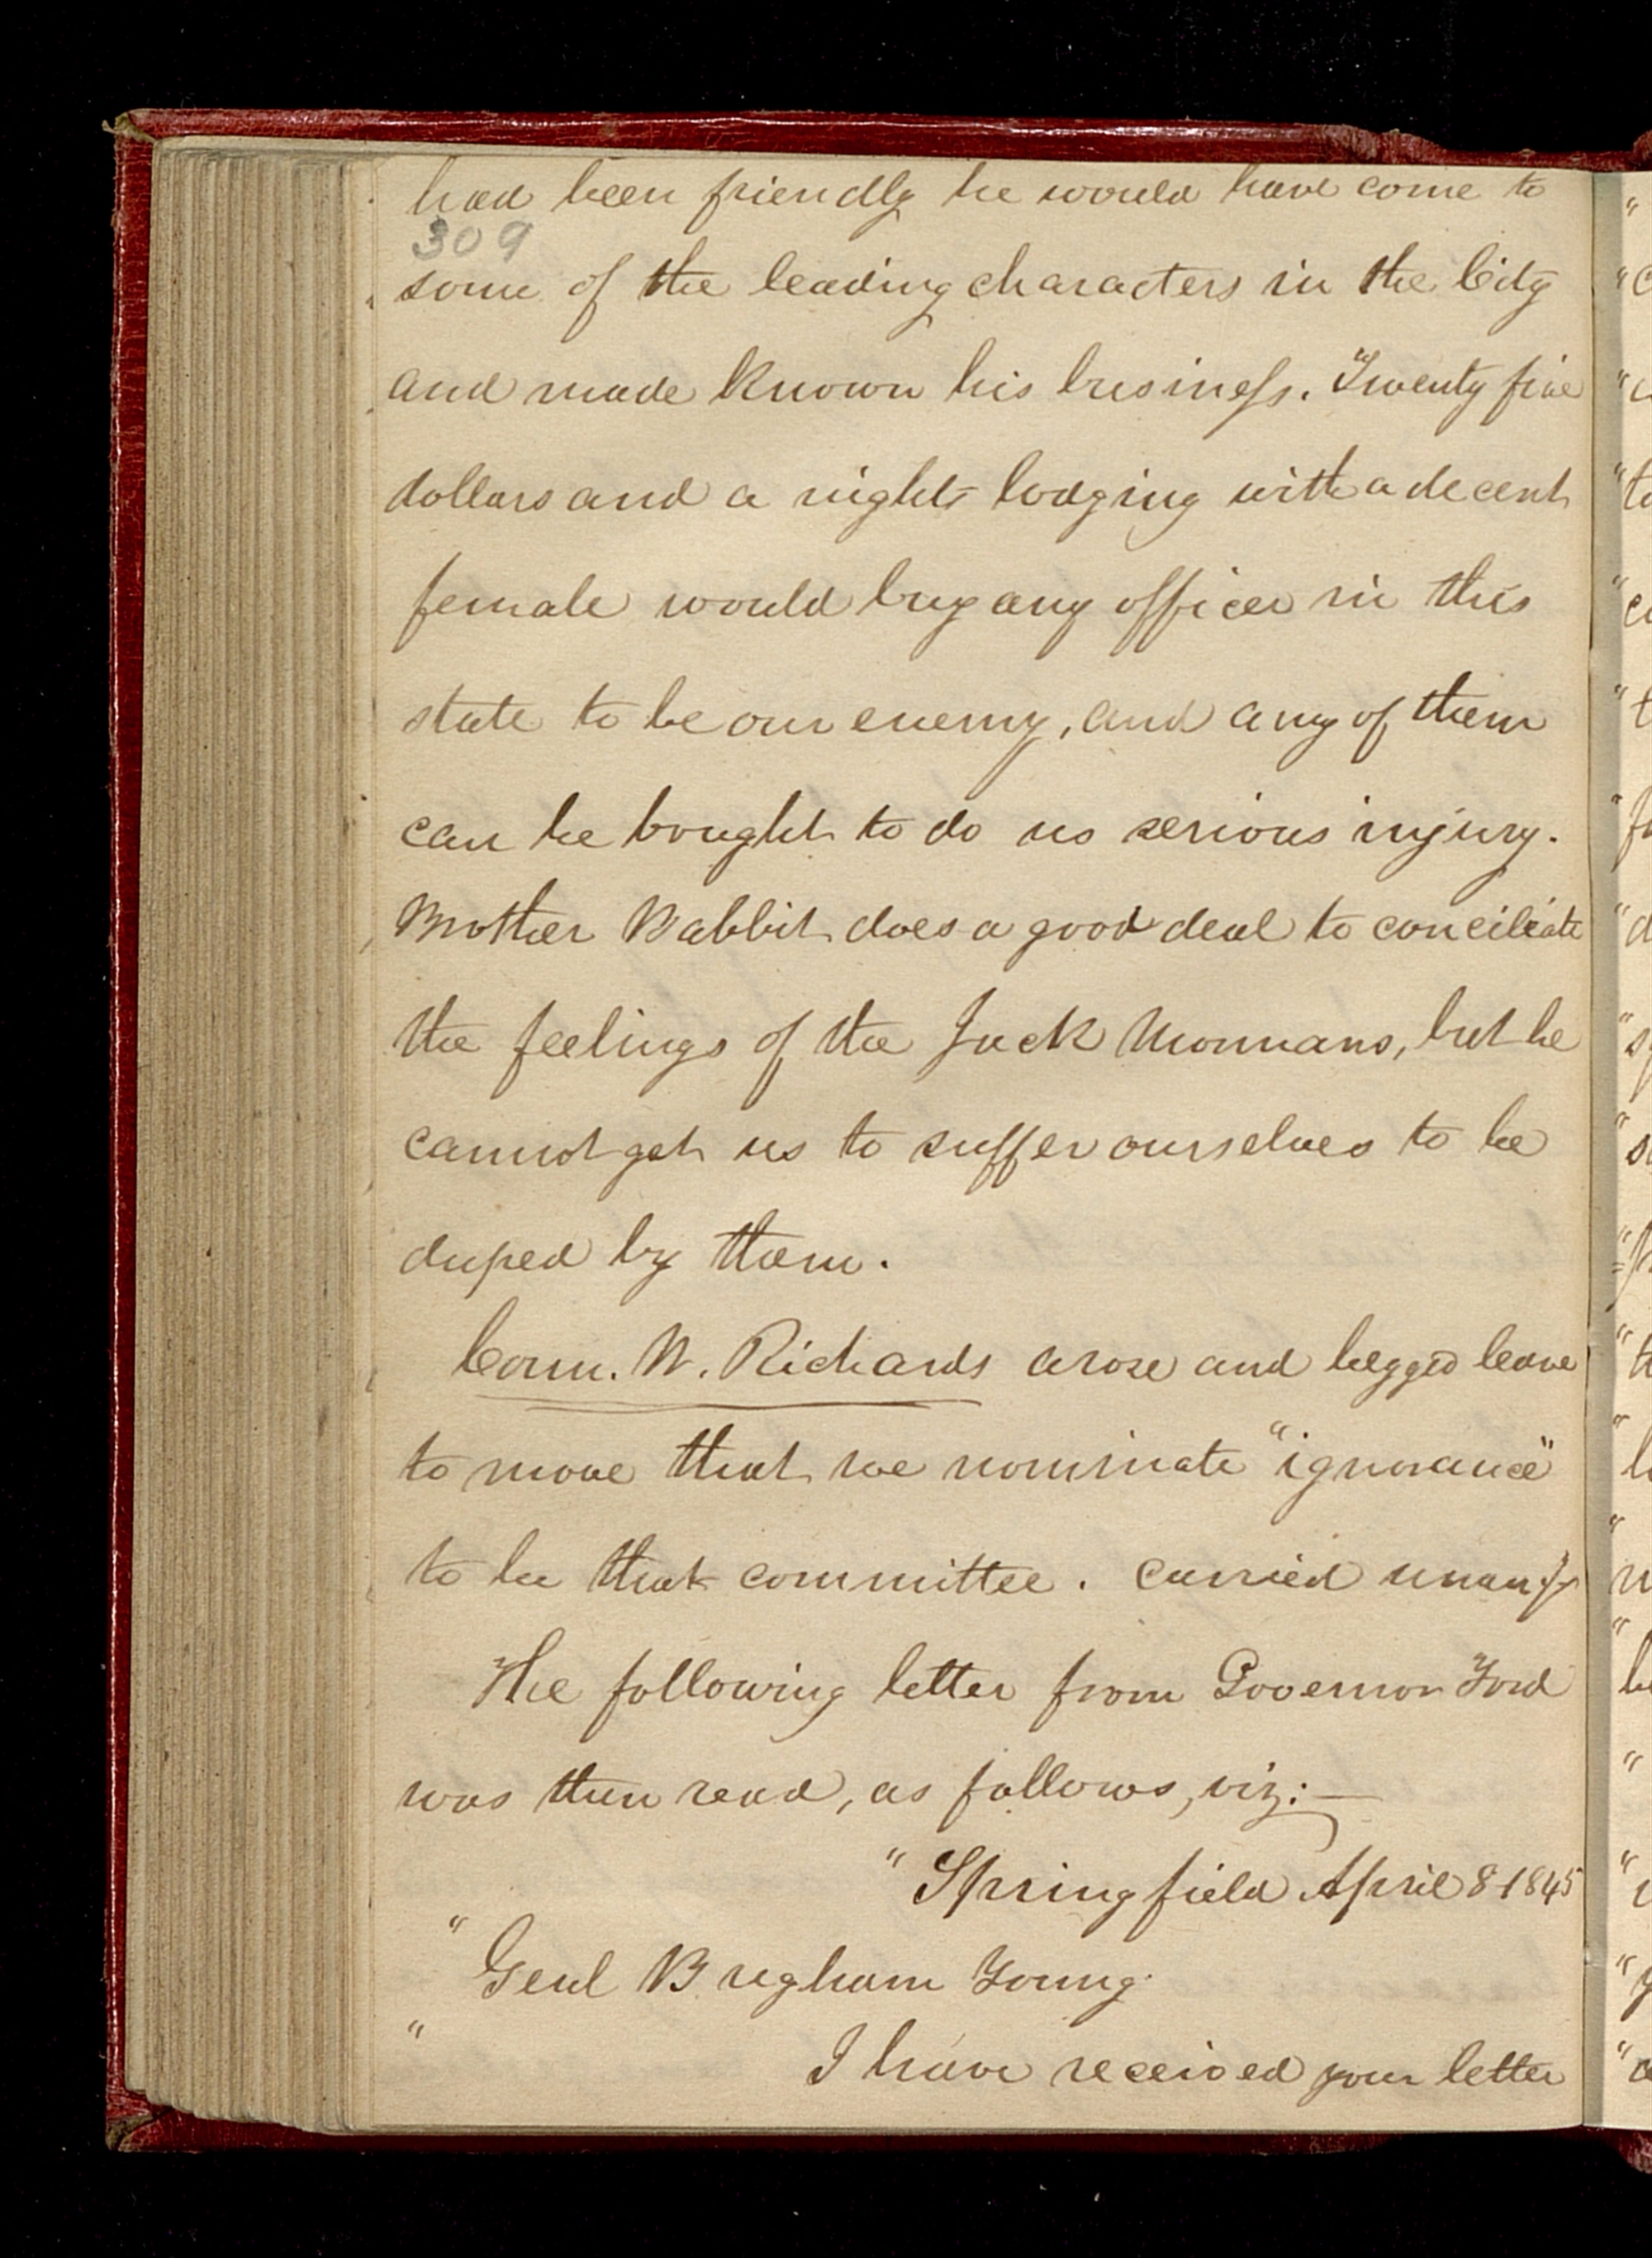 had been friendly he would have come to
309
some of the leading characters in the City
and made known his business. "Twenty five
dollars and a nights lodging with a decent
female would buy any officer in this
state to be our enemy, and any of them
can be bought to do us serious injury.
Brother Babbit does a good deal to conciliate
the feelings of the Jack Mormans, but he
cannot get us to suffer ourselves to be
duped by them.
Coun. W. Richards arose and begged leave
to move that we nominate "ignorance"
to be that committee. carried unany
The following letter from Governor Ford
was then read, as follows, viz:—
" Springfield April 8 1845
" Genl Brigham Young.
" I have received your letter